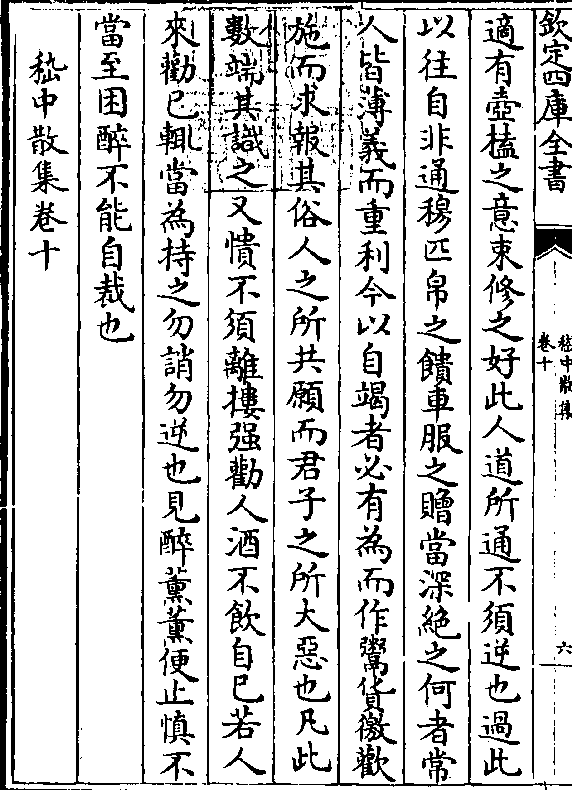 欽定四庫全書
嵇中散集
卷十
六
適有壺榼之意束修之好此人道所通不須逆也過此
以往自非通穆匹帛之饋車服之贈當深絶之何者常
人皆薄義而重利今以自竭者必有為而作鬻貨徼歡
施而求報其俗人之所共願而君子之所大惡也凡此
數端其識之又愦不須離摟强勸人酒不飲自已若人
來勸已輒當為持之勿誚勿逆也見醉薰薰便止慎不
當至困醉不能自裁也
嵇中散集卷十